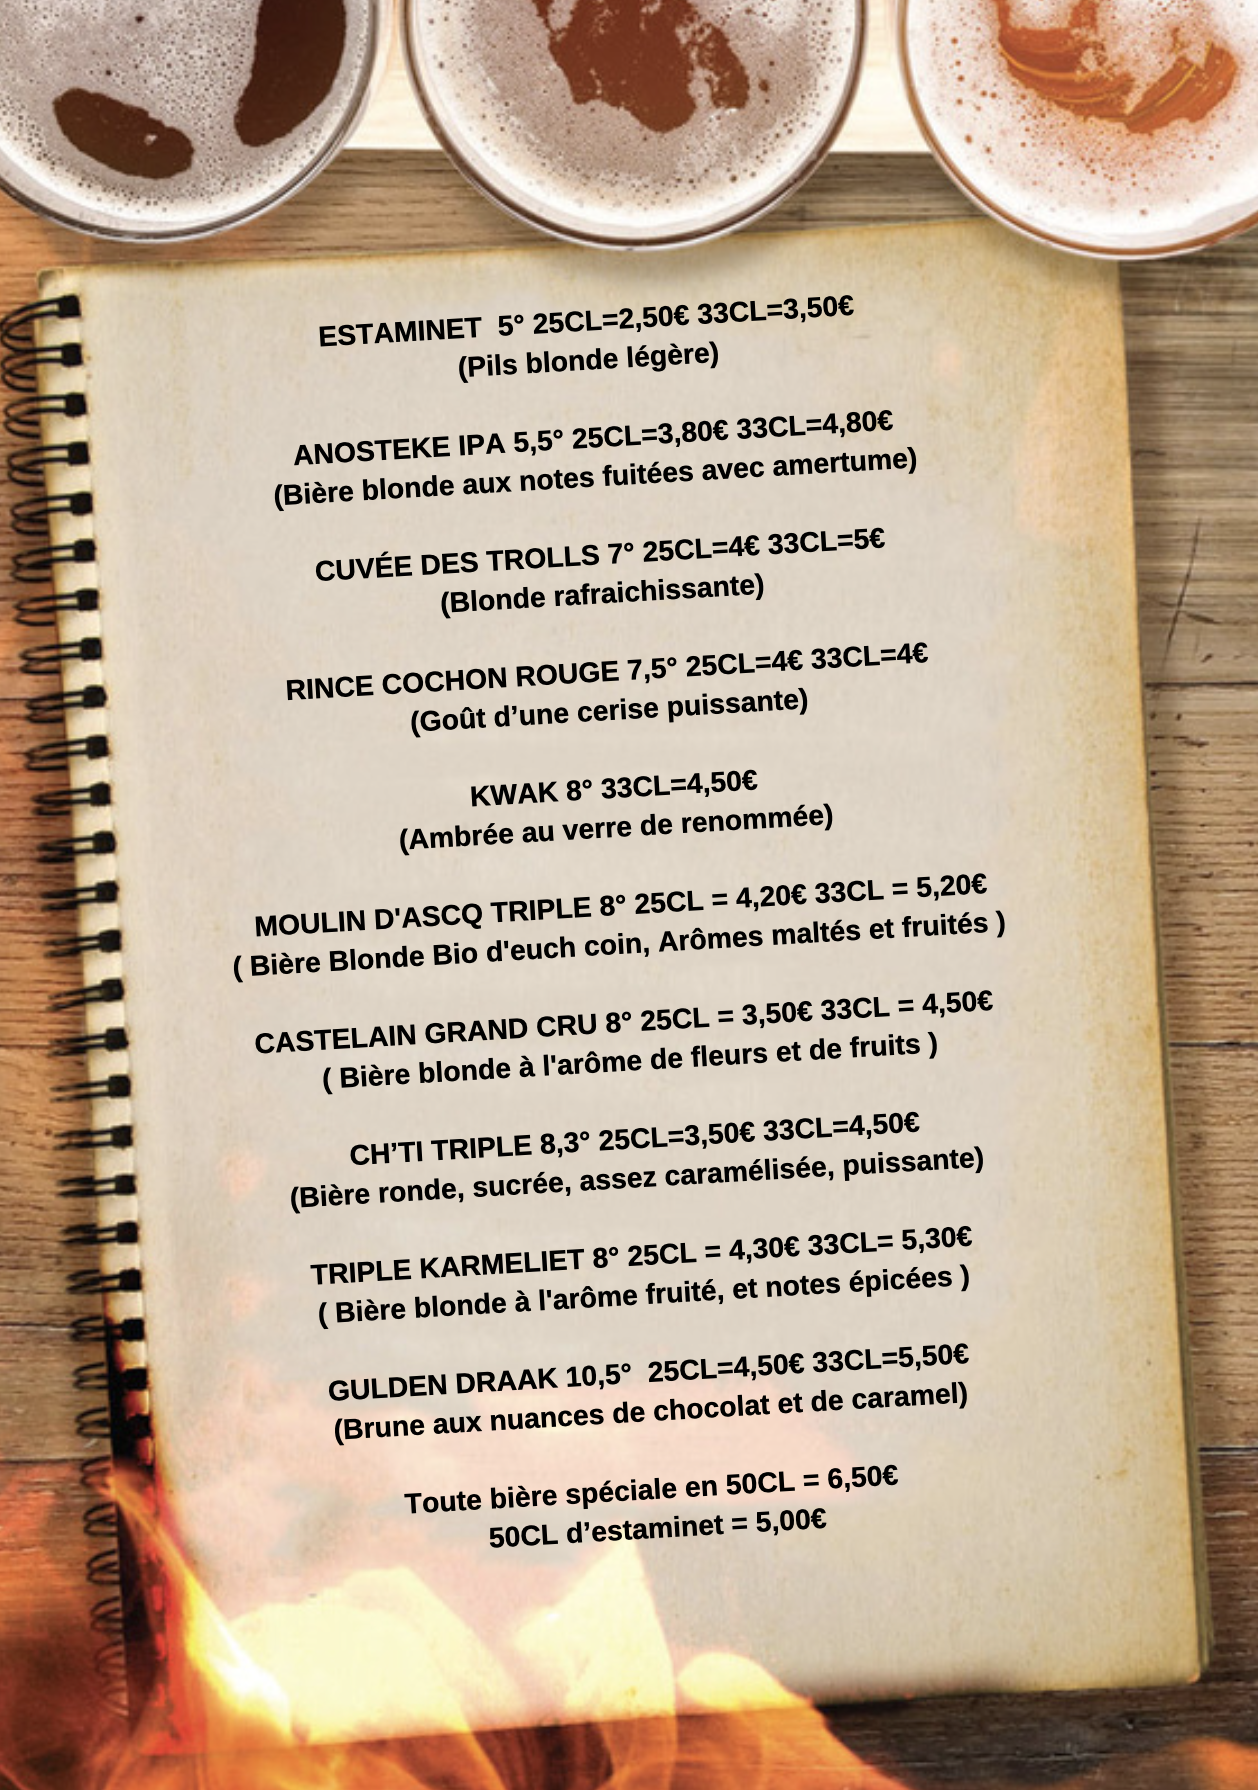 ESTAMINET  5° 25CL=2,50€ 33CL=3,50€
(Pils blonde légère)
ANOSTEKE IPA 5,5° 25CL=3,80€ 33CL=4,80€
(Bière blonde aux notes fuitées avec amertume)
CUVÉE DES TROLLS 7° 25CL=4€ 33CL=5€
(Blonde rafraichissante)
RINCE COCHON ROUGE 7,5° 25CL=4€ 33CL=4€
(Goût d’une cerise puissante)
KWAK 8° 33CL=4,50€
(Ambrée au verre de renommée)
MOULIN D'ASCQ TRIPLE 8° 25CL = 4,20€ 33CL = 5,20€
( Bière Blonde Bio d'euch coin, Arômes maltés et fruités )
CASTELAIN GRAND CRU 8° 25CL = 3,50€ 33CL = 4,50€
( Bière blonde à l'arôme de fleurs et de fruits )
CH’TI TRIPLE 8,3° 25CL=3,50€ 33CL=4,50€
(Bière ronde, sucrée, assez caramélisée, puissante)
TRIPLE KARMELIET 8° 25CL = 4,30€ 33CL= 5,30€
( Bière blonde à l'arôme fruité, et notes épicées )
GULDEN DRAAK 10,5°  25CL=4,50€ 33CL=5,50€
(Brune aux nuances de chocolat et de caramel)
Toute bière spéciale en 50CL = 6,50€
50CL d’estaminet = 5,00€